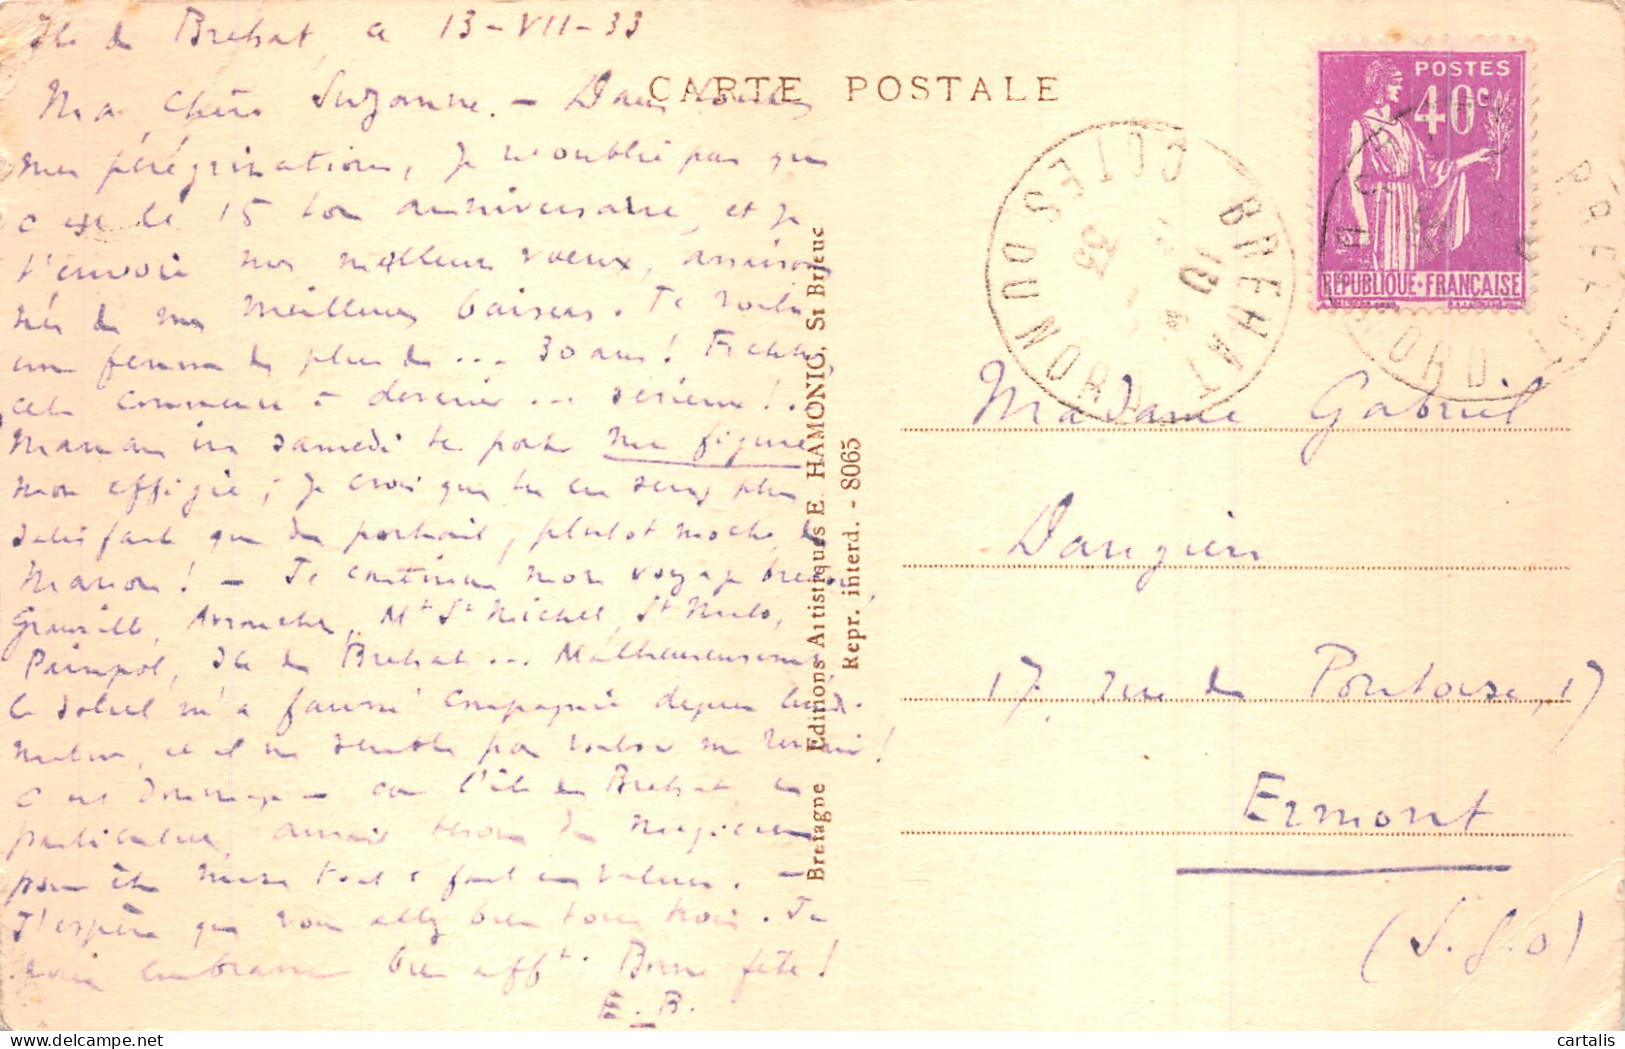 Ile de Brehat, ce 13-VII-33
Ma chère Suzanne. - Dans toutes
mes pérégrinations, je n'oublie pas que
c'est le 15 ton anniversaire, et je
t'envoie mes meilleurs voeux, assaison
nés de mes meilleurs baisers. Te voilà
une femme de plus de ... 30 ans! Fichtre,
cela commence à devenir ... sérieux!.
Maman ira samedi te porter ma figure
mon effigie; je crois que tu en seras plus
satisfaite que du portrait, plutot moche, de
Manon! - Je continue mon voyage breton,
Granville, Avranches, Mt St Michel, St Malo,
Paimpol, Ile de Brehat ... Malheureusement
le soleil m'a faussé compagnie depuis
matin, et il ne semble pas vouloir me revenir!
C'est dommage - car l'île de Brehat, en
particulier, aurait besoin de
pour être mise tout à fait en valeur. -
J'espère que vous allez bien tous trois. Je
vous embrasse bien afft. Bonne fête!
E. B.
CARTE POSTALE
Bretagne Editions Artistiques E. HAMONIC, St Brieuc
Repr. interd. - 8065
BREHAT
COTES DU NORD
33
POSTES
40c
REPUBLIQUE·FRANÇAISE
BREHAT
Madame Gabriel
Dangien
17, rue de Pontoise, 17
Ermont
(S.&.O)
cartalis